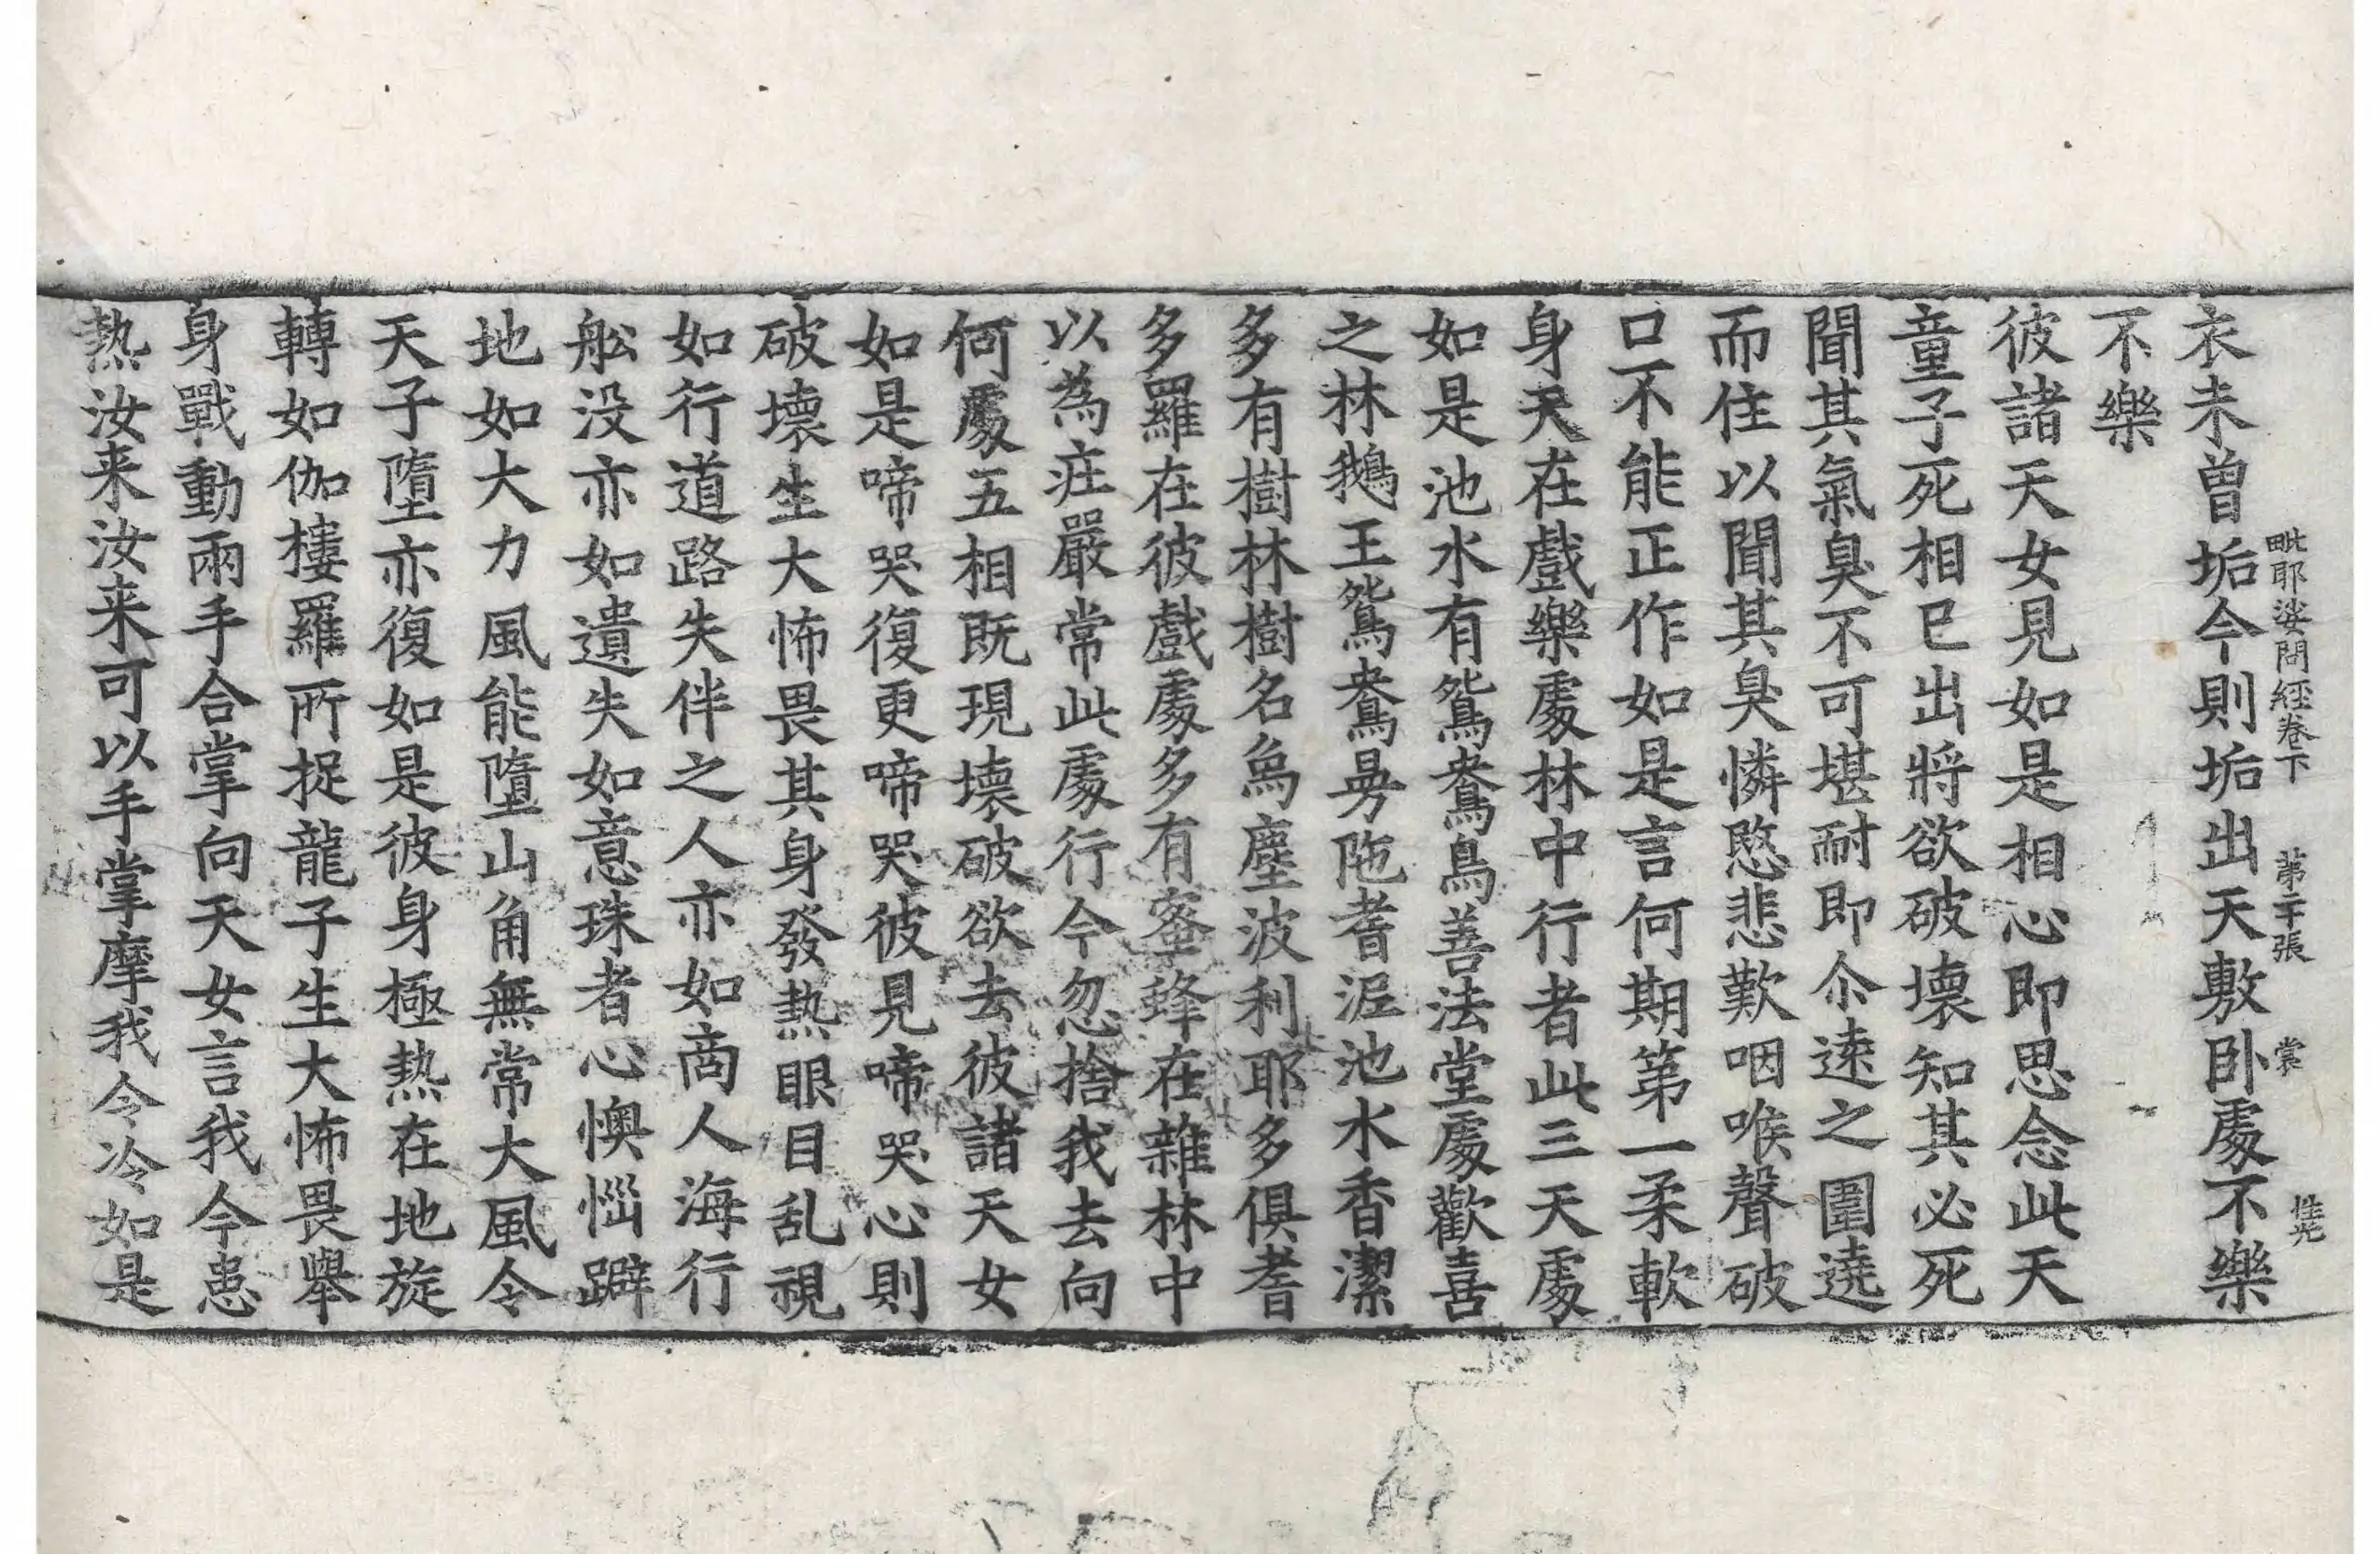 毗耶娑問經卷下 第二十張 常 性光
衣未曾垢今則垢出天敷卧處不樂
不樂
彼諸天女見如是相心即思念此天
童子死相已出將欲破壞知其必死
聞其氣臭不可堪耐即尒遠之圍遶
而住以聞其臭憐愍悲歎咽喉聲破
口不能正作如是言何期第一柔軟
身天在戲樂處林中行者此三天處
如是池水有鴛鴦鳥善法堂處歡喜
之林鵝王鴛鴦曼陁耆湼池水香潔
多有樹林樹名為塵波利耶多俱耆
多羅在彼戲處多有蜜蜂在雜林中
以為莊嚴常此處行今忽捨我去向
何處五相既現壞破欲去彼諸天女
如是啼哭復更啼哭彼見啼哭心則
破壞生大怖畏其身發熱眼目乱視
如行道路失伴之人亦如商人海行
舩没亦如遺失如意珠者心懊惱躃
地如大力風能墮山角無常大風令
天子墮亦復如是彼身極熱在地旋
轉如伽樓羅所捉龍子生大怖畏舉
身戰動兩手合掌向天女言我今患
熱汝来汝来可以手掌摩我令冷如是